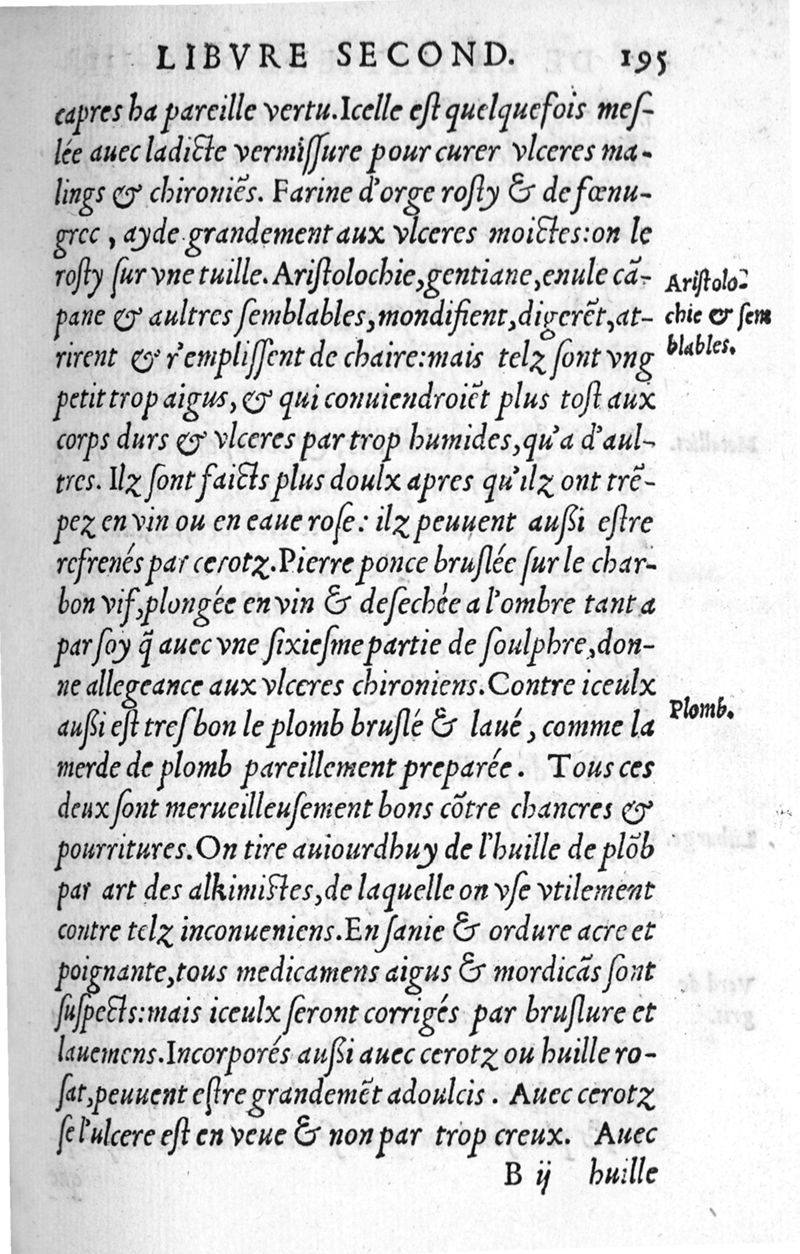 LIBVRE SECOND. 195
capres ha pareille vertu.Icelle est quelquefois mes-
lée auec ladicte vermissure pour curer vlceres ma-
lings & chironiẽs. Farine d'orge rosty & de fœnu-
grec, ayde grandement aux vlceres moictes:on le
rosty sur vne tuille.Aristolochie,gentiane,enule cã-
pane & aultres semblables,mondifient,digerẽt,at-
rirent & r'emplissent de chaire:mais telz sont vng
petit trop aigus, & qui conuiendroiẽt plus tost aux
corps durs & vlceres par trop humides,qu'a d'aul-
tres. Ilz sont faicts plus doulx apres qu'ilz ont trẽ-
pez en vin ou en eaue rose: ilz peuuent aussi estre
refrenés par cerotz.Pierre ponce bruslée sur le char-
bon vif,plongée en vin & desechée a l'ombre tant a
par soy q̃ auec vne sixiesme partie de soulphre,don-
ne allegeance aux vlceres chironiens.Contre iceulx
aussi est tres bon le plomb bruslé & laué, comme la
merde de plomb pareillement preparée. Tous ces
deux sont merueilleusement bons cõtre chancres &
pourritures.On tire auiourdhuy de l'huille de plõb
par art des alkimistes,de laquelle on vse vtilement
contre telz inconueniens.En sanie & ordure acre et
poignante,tous medicamens aigus & mordicãs sont
suspects:mais iceulx seront corrigés par bruslure et
lauemens.Incorporés aussi auec cerotz ou huille ro-
sat,peuuent estre grandemẽt adoulcis. Auec cerotz
se l'ulcere est en veue & non par trop creux. Auec
B ij huille
Aristolo-
chie & sem
blables.
Plomb.